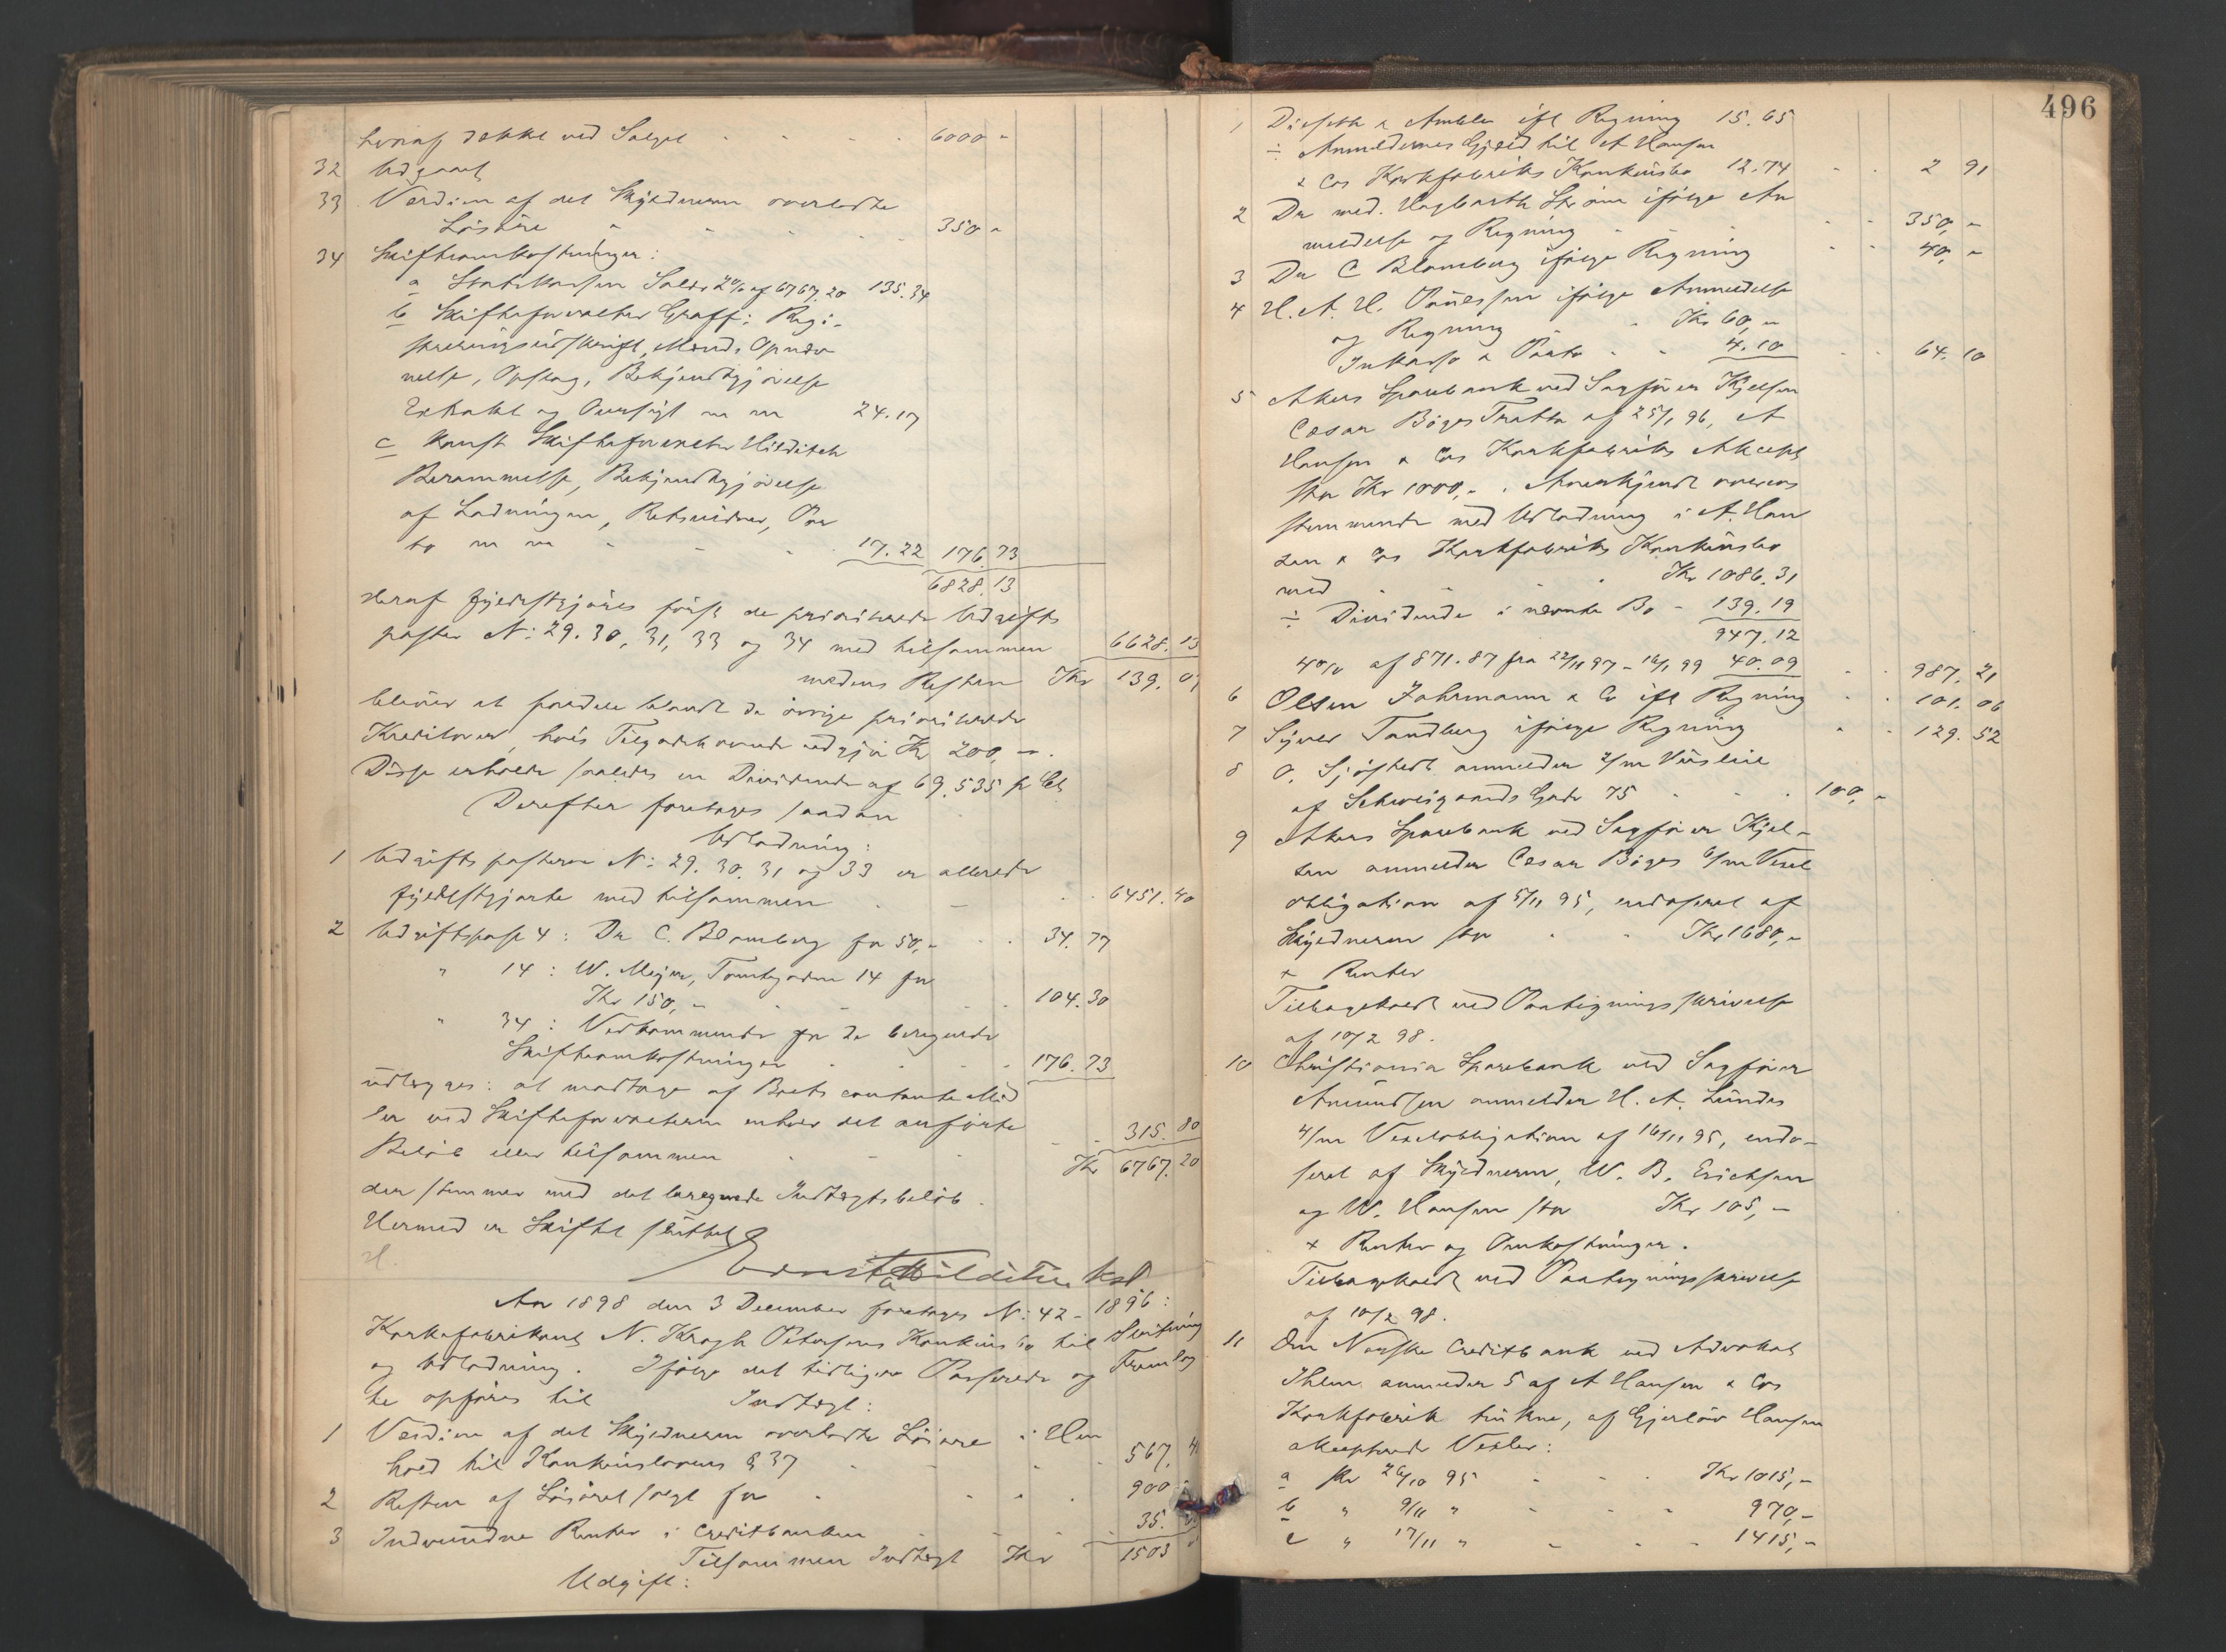 heraf dækket ved Salget 6000 "
32 Udgaaet
33 Værdien af det Skyldneren overladte
Løsøre 350 "
34 Skifteomkostninger:
a Statskassen Salær 2% af 6767.20 135.34
b Skifteforvalter Graff: Regi-
streringsudskrift, Mænds Opnæv-
nelse, Opslag, Bekjendtgjørelse
Extrakt og Oversigt m m 24.17
c Konst Skifteforvalter Hilditch
Berammelse, Bekjendtgjørelse
af Ladningen, Retsvidner, Por
to m m 17.22 176.73
6828.13
Heraf fyldestgjøres først de prioriterede Udgifts
poster N: 29. 30, 31, 33 og 34 med tilsammen 6628.13
medens Resten Kr 139.07
bliver at fordele blandt de øvrige prioriterede
Kreditorer, hvis Tilgodehavende udgjør Kr 200,-.
Disse erholde saaledes en Dividende af 69.535 pCt
Derefter foretoges saadan
Udlodning:
1 Udgiftsposterne N: 29. 30. 31 og 33 er allerede
fyldestgjorte med tilsammen 6451.40
2 Udgiftspost 4: Dr C. Blomberg for 50,- 34.77
" 14: W. Mejer, Tomtegaden 14 for
Kr 150,- 104.30
" 34: Vedkommende for de beregnede
Skifteomkostninger 176.73
udlægges: at modtage af Boets contante Mid
ler ved Skifteforvalteren enhver det anførte
Beløb eller tilsammen 315.80
Kr 6767.20
der stemmer med det beregnede Indtægtsbeløb.
Hermed er Skiftet sluttet
H.
Ernst Hilditch kst
Aar 1898 den 3 December foretoges N: 42 - 1896:
Korkefabrikant N. Krogh Petersens Konkursbo til Slutning
og Udlodning. Ifølge det tidligere Passerede og Fremlag
te opføres til Indtægt:
1 Værdien af det Skyldneren overladte Løsøre i Hen
hold til Konkurslovens § 37 567.4
2 Resten af Løsøret solgt for 900
3 Indvundne Renter i Creditbanken 35.
Tilsammen Indtægt Kr 1503
Udgift:
496
1 Diesetth & Ambln ifl Regning 15.65
÷ Anmeldernes Gjæld til A Hansen
& Cos Korkfabriks Konkursbo 12.74 2 91
2 Dr med. Hagbarth Strøm ifølge An
meldelse og Regning 350,-
3 Dr C Blomberg ifølge Regning 40,-
4 H. A. H. Paulssen ifølge Anmeldelse
og Regning Kr 60,-
Inkasso & Porto 4.10 64.10
5 Akers Sparebank ved Sagfører Kjelsen
Cæsar Bøges Tratte af 25/1 96, A
Hansen & Cos Korkfabriks Akcept
stor Kr 1000,-. Anerkjendt overens
stemmende med Udlodning i A. Han
sen & Cos Korkfabriks Konkursbo
med Kr 1086.31
÷ Dividende i nævnte Bo - 139.19
947.12
4% af 871.87 fra 22/11 97 - 16/1 99 40.09 987.21
6 Olsen Fahrmann & Co ifl Regning 101.06
7 Syver Tandberg ifølge Regning 129.52
8 O. Sjøstedt anmelder 2/m Husleie
af Schweigaards Gade 75 100,-
9 Akers Sparebank ved Sagfører Kjel-
sen anmelder Cesar Bøges 6/m Vexel
obligation af 5/11 95, endosseret af
Skyldneren stor Kr 1680,-
+ Renter
Tilbagekaldt ved Paategningsskrivelse
af 10/2 98.
10 Christiania Sparebank ved Sagfører
Amundsen anmelder H. A. Lundes
4/m Vexelobligation af 16/11 95, endo-
seret af Skyldneren, W. B. Erichsen
og W. Hansen stor Kr 105,-
+ Renter og Omkostninger.
Tilbagekaldt ved Paategningsskrivelse
af 10/2 98.
11 Den Norske Creditbank ved Advokat
Ihlen anmelder 5 af A Hansen & Cos
Korkfabrik trukne, af Gjerløv Hansen
akcepterede Vexler:
a pr 26/10 95 Kr 1015,-
b " 9/11 " 970,-
c " 17/11 " 1415,-